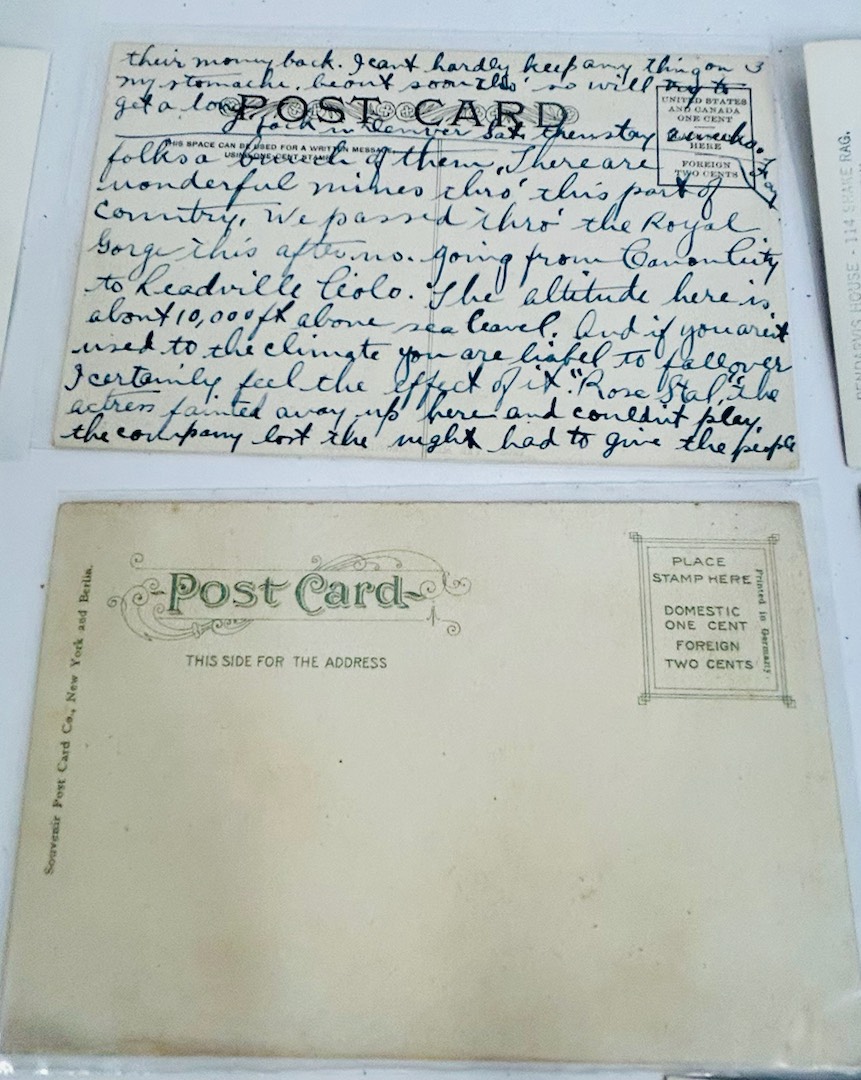 their money back. I cant hardly keep any thing on
my stomache. be out soon tho' so will try to
get a long
POST CARD
UNITED STATES
AND CANADA
ONE CENT
HERE
FOREIGN
TWO CENTS
in Denver Sat. then stay 2 weeks.
THIS SPACE CAN BE USED FOR A WRITTEN MESSAGE
USING ONE CENT STAMP
folks a bunch of them, There are
wonderful mines thro' this part of
country. We passed thro' the Royal
Gorge this after.no. going from Canon City
to Leadville Colo. The altitude here is
about 10,000 ft above sea leavel. And if you are'nt
used to the climate you are liabel to fall over
I certainly feel the effect of it. "Rose Stal," the
actress fainted away up here and couldn't play,
the company lost the night had to give the people
Post Card
THIS SIDE FOR THE ADDRESS
PLACE
STAMP HERE
DOMESTIC
ONE CENT
FOREIGN
TWO CENTS
Printed in Germany.
Souvenir Post Card Co., New York and Berlin.
HOUSE - 114 SHAKE RAG.